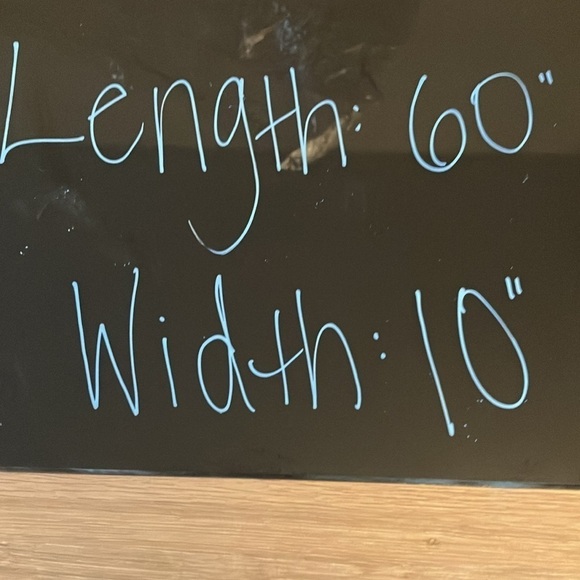 Length: 60"
Width: 10"